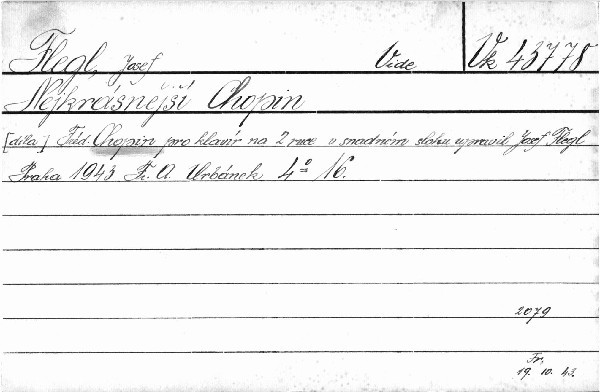 Flegl, Josef Vide Vk 43778
Nejkrásnější Chopin
[díla] Fréd. Chopin pro klavír na 2 ruce v snadném slohu upravil Josef Flegl
Praha 1943 Fr. A. Urbánek 4° 16.
2079
Fr.
19. 10. 43.